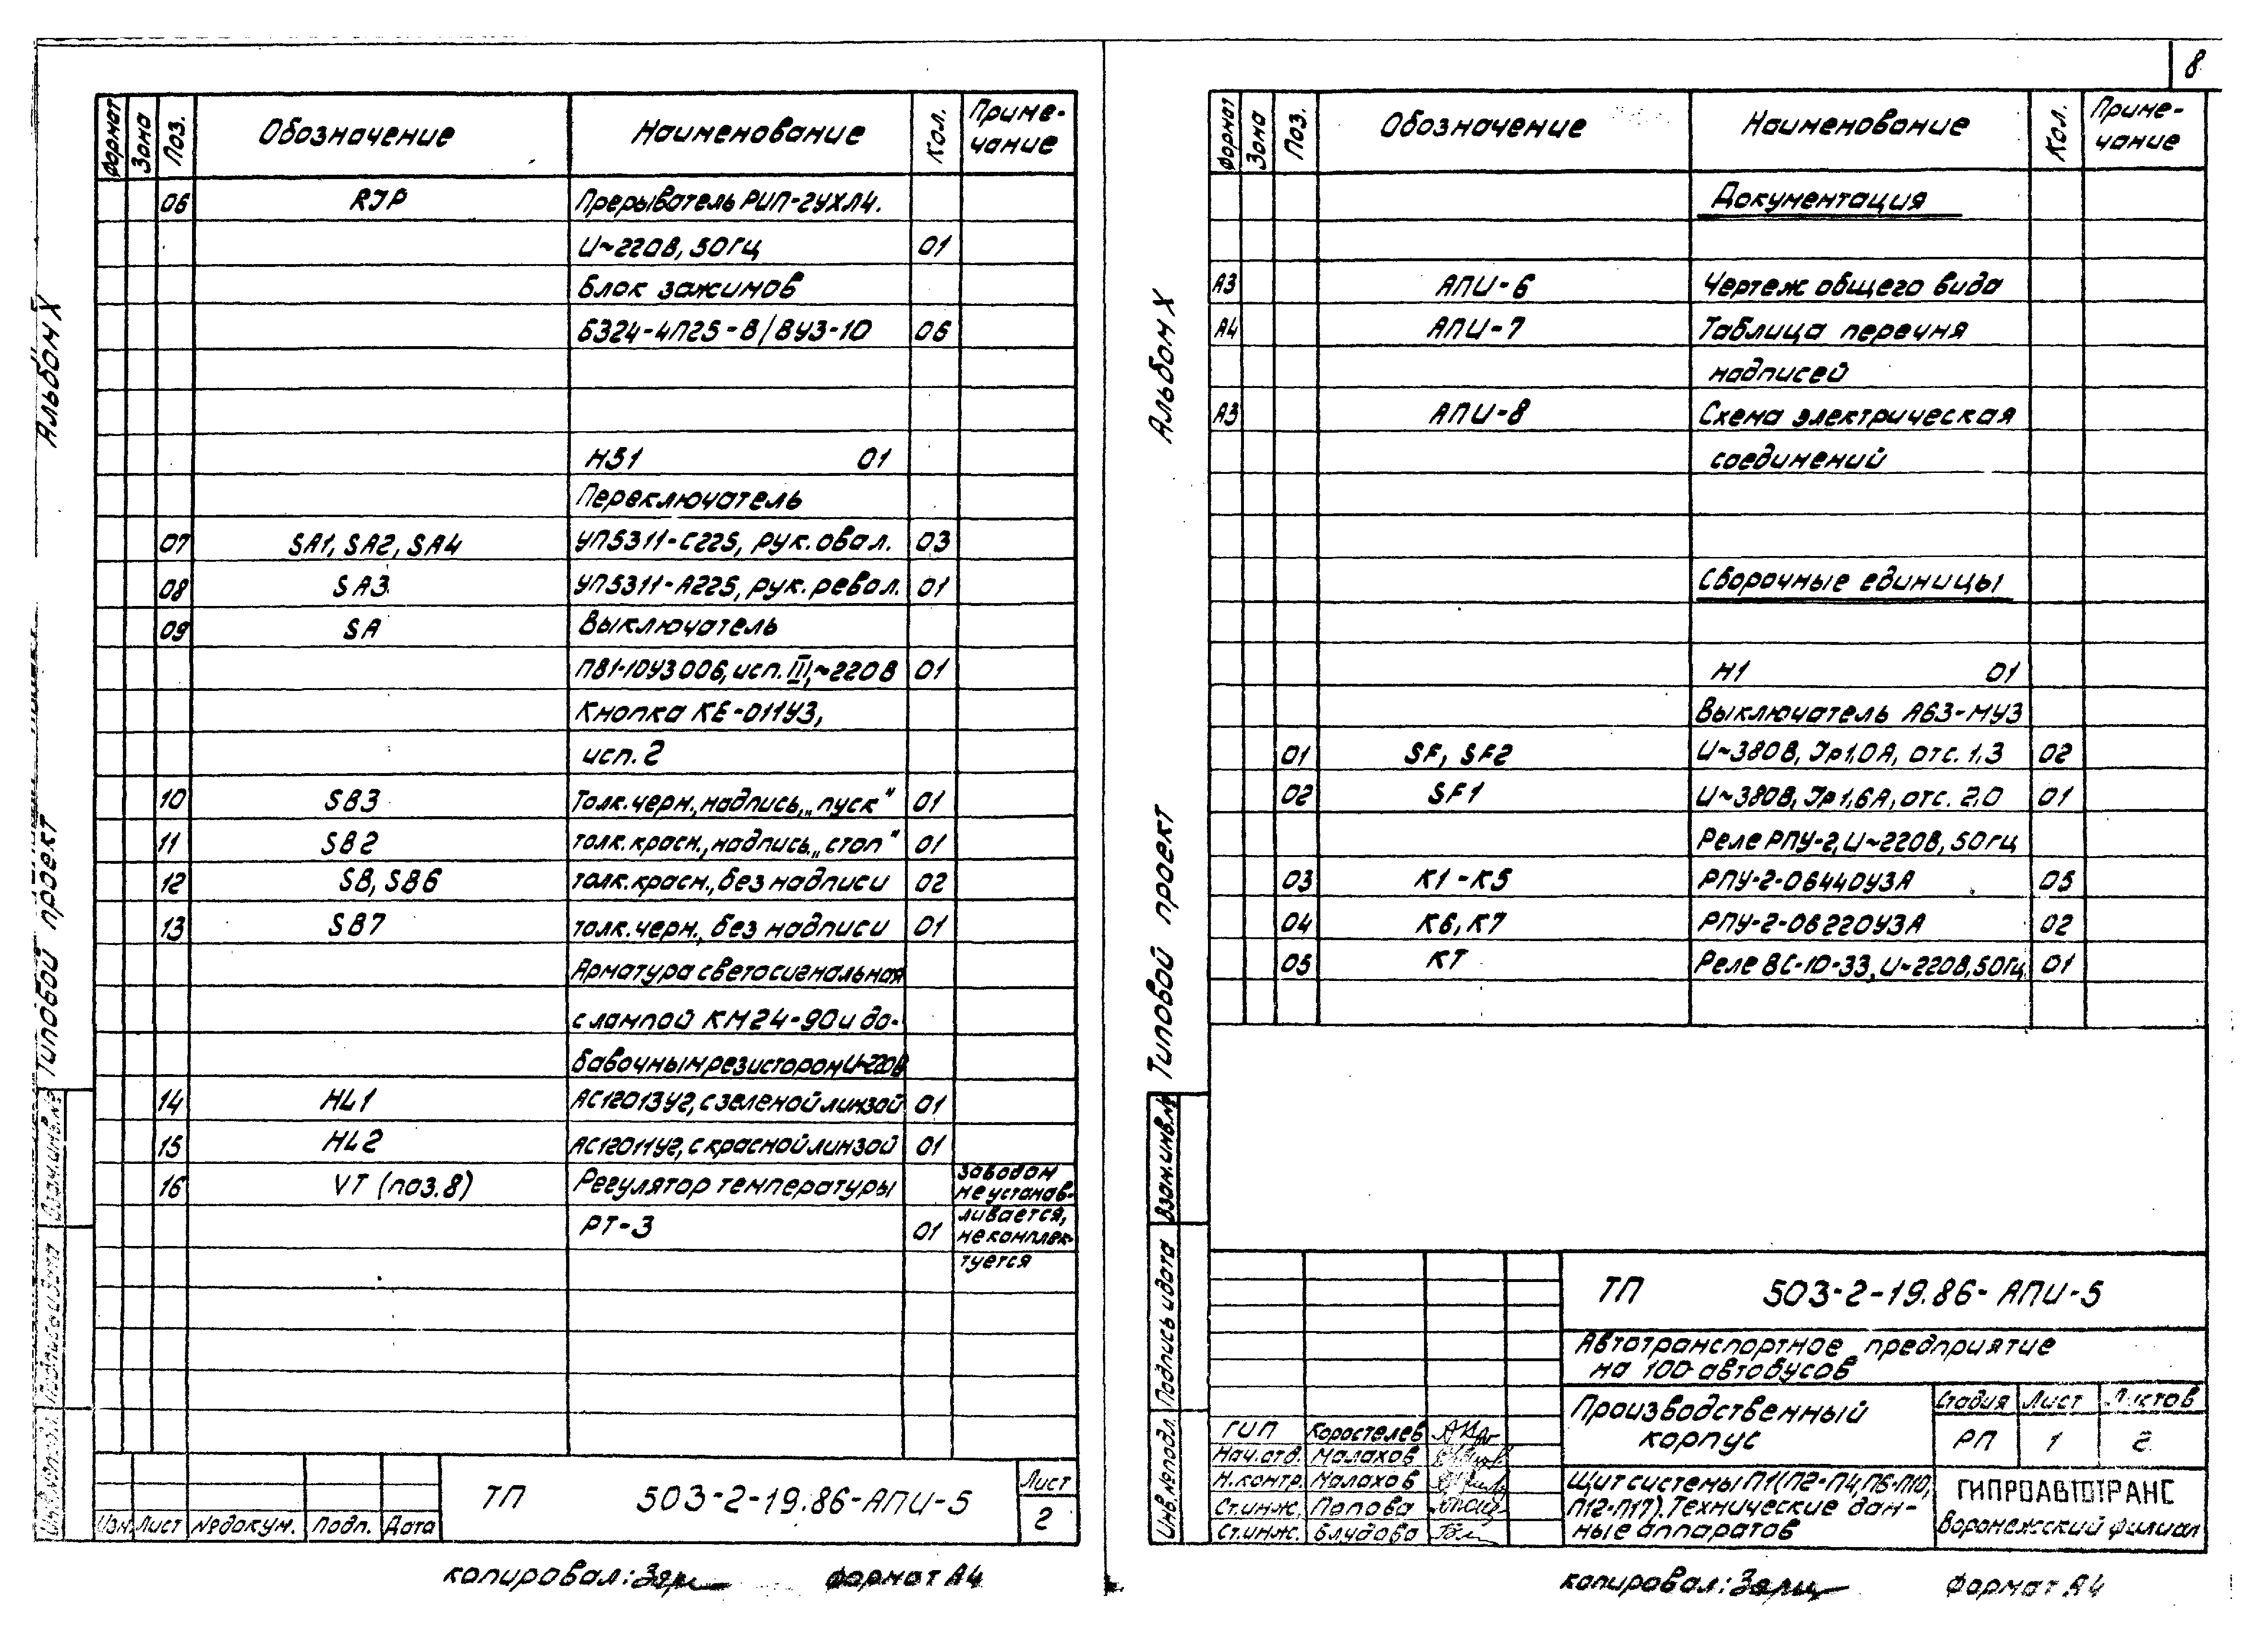 8
Альбом X
Типовой проект
Формат Зона Поз. Обозначение Наименование Кол. Приме-
чание
06 RJP Прерыватель РИП-2УХЛ4.
U~220В, 50Гц 01
Блок зажимов
БЗ24-4П25-В/ВУ3-10 06
Н51 01
Переключатель
07 SA1, SA2, SA4 УП5311-С225, рук. овал. 03
08 SA3 УП5311-А225, рук. револ. 01
09 SA Выключатель
ПВ1-10У3 006, исп. III, ~220В 01
Кнопка КЕ-011У3,
исп. 2
10 SB3 Толк. черн., надпись „пуск" 01
11 SB2 толк. красн., надпись „стоп" 01
12 SB, SB6 толк. красн., без надписи 02
13 SB7 толк. черн., без надписи 01
Арматура светосигнальная
с лампой КМ24-90 и до-
бавочным резистором U~220В
14 HL1 АС12013У2, с зеленой линзой 01
15 HL2 АС12011У2, с красной линзой 01
16 VT (поз. 8) Регулятор температуры
РТ-3 01
заводом
не устанав-
ливается,
не комплек-
туется
Взам. инв. №
Подпись и дата
Инв. № подл.
Изм. Лист № докум. Подп. Дата
ТП 503-2-19.86-АПИ-5
Лист
2
копировал: формат А4
Альбом X
Типовой проект
Формат Зона Поз. Обозначение Наименование Кол. Приме-
чание
Документация
А3 АПИ-6 Чертеж общего вида
А4 АПИ-7 Таблица перечня
надписей
А3 АПИ-8 Схема электрическая
соединений
Сборочные единицы
Н1 01
Выключатель А63-МУ3
01 SF, SF2 U~380В, Iр1,0А, отс. 1,3 02
02 SF1 U~380В, Iр1,6А, отс. 2,0 01
Реле РПУ-2, U~220В, 50гц
03 К1-К5 РПУ-2-06440У3А 05
04 К6, К7 РПУ-2-06220У3А 02
05 КТ Реле ВС-10-33, U~220В, 50Гц 01
Взам. инв. №
Подпись и дата
Инв. № подл.
ТП 503-2-19.86-АПИ-5
Автотранспортное предприятие
на 100 автобусов
Производственный
корпус
Стадия Лист Листов
РП 1 2
ГИП Коростелев
Нач. отд. Малахов
Н. контр. Малахов
Ст. инж. Попова
Ст. инж. Блудова
Щит системы П1 (П2-П4, П6-П10,
П12-П17). Технические дан-
ные аппаратов
ГИПРОАВТОТРАНС
Воронежский филиал
копировал: формат А4